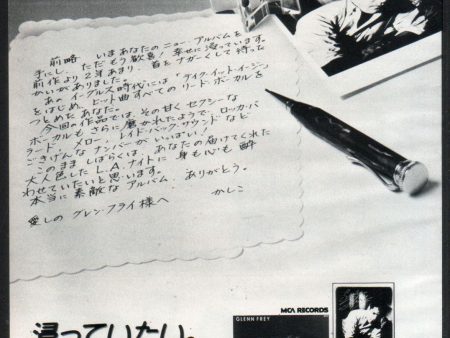 前略　いまあなたのニュー・アルバムを
手にし、ただもう歓喜！幸せに浸っています。
前作より2年あまり、首をナガーくして待った
かいがありました。
あのイーグルス時代には「テイク・イット・イージー」
をはじめ、ヒット曲すべてのリード・ボーカルを
つとめたあなた。
今回の作品では、その甘くセクシーな
ボーカルもさらに磨かれたようで、ロッカ・バ
ラード、メロー、レイド・バック・サウンドなど
ごきげんなナンバーがいっぱい！
このまましばらくは、あなたの届けてくれた
大人色したL.A.ナイトに身も心も酔
わせていたいと思います。
本当に素敵なアルバム、ありがとう。
かしこ
愛しのグレン・フライ様へ
浸っていたい。
MCA RECORDS
GLENN FREY